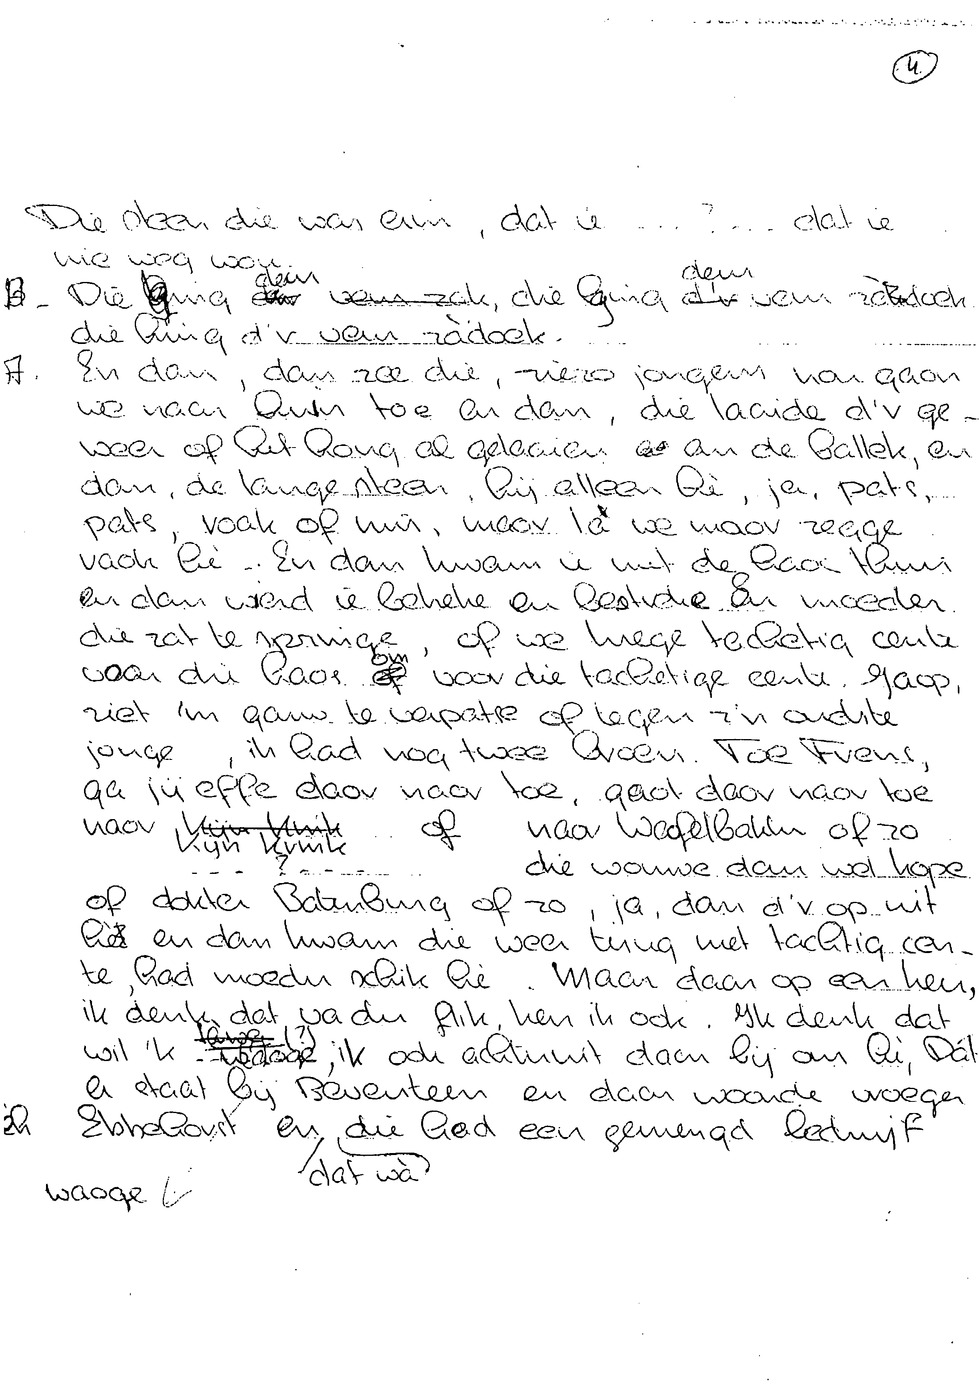 4.
Die steen die was erin, dat ie ...?... dat ie
nie weg won.
dem dem
B- Die ging d'r vem zak, die ging d'r vem zàdoek
die hing d'r vem zàdoek.
A. En dan, dan zee die, ziezo jongens nou gaon
we naar huis toe en dan, die laaide d'r ge-
weer of hit hong al gelaaien an de ballek, en
dan, de lange steen, hij alleen hè, ja, pats,
pats, voak of min, maor là we maor zegge
vaok hè .. En dan kwam ie mit de haos thuus
en dan werd ie bekeke en bestudie En moeder
die zat te springe, of we krege tachetig cente
voor die haos om voor die tachetige cente. Jaop,
ziet 'm gauw te verpatse of tegen z'n oudste
jonge, ik had nog twee broers. Toe Frens,
ga jij effe daor naor toe, gaot daor naor toe
naor Kijn Kunik of naor Weefelbakke of zo
---?--- die wouwe dan wel kope
of dokter Batenburg of zo, ja, dan d'r op uit
hè en dan kwam die weer terug met tachtig cen-
te, had moeder schik hè. Maar daar op een ken,
ik denk, dat vader flik, ken ik ook. Ik denk dat
lange (?)
wil 'k, ik ook achteruit daar bij ons hè, Dát
e staat bij Beventeen en daar woonde vroeger
Ebbehorst en die had een gemengd bedrijf
dat wà
waoge